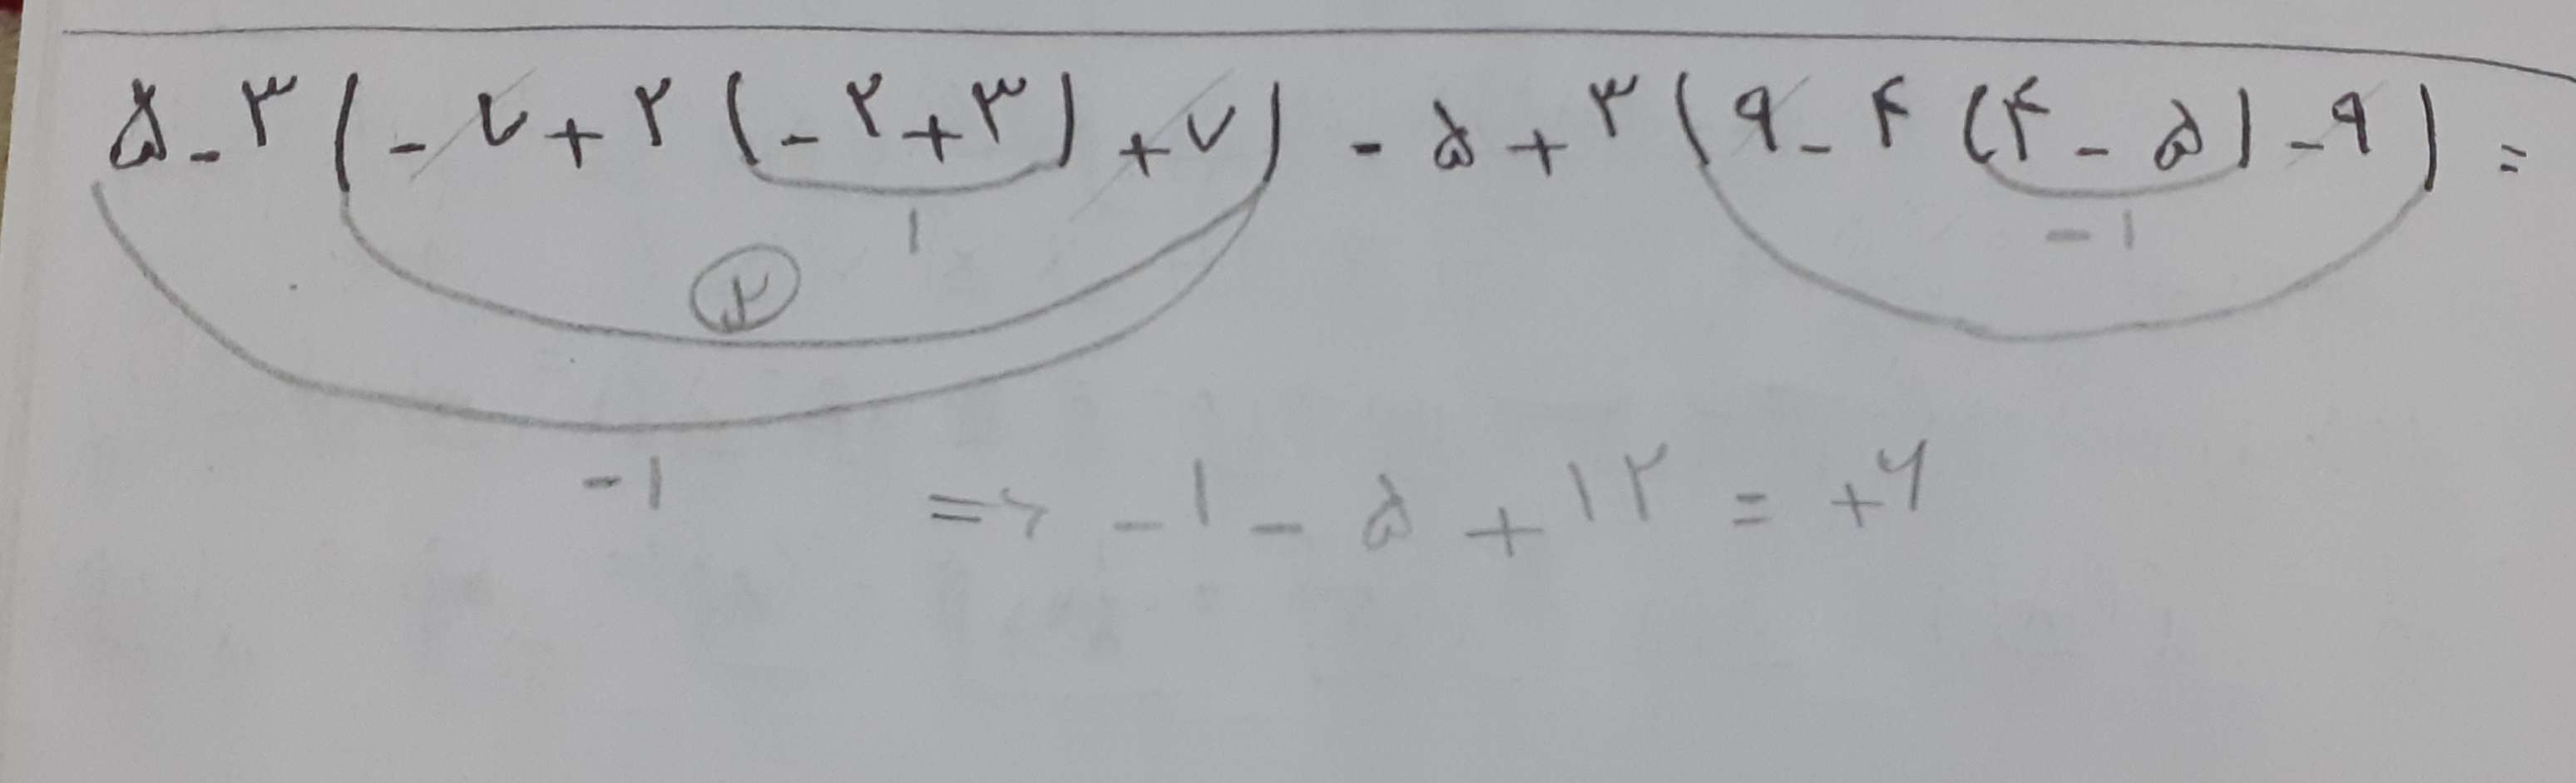 ۵-۳(-۷+۲(-۲+۳)+۷)-۵+۳(۹-۴(۴-۵)-۹)=
۱ -۱
۲
-۱ => -۱-۵+۱۲=+۶